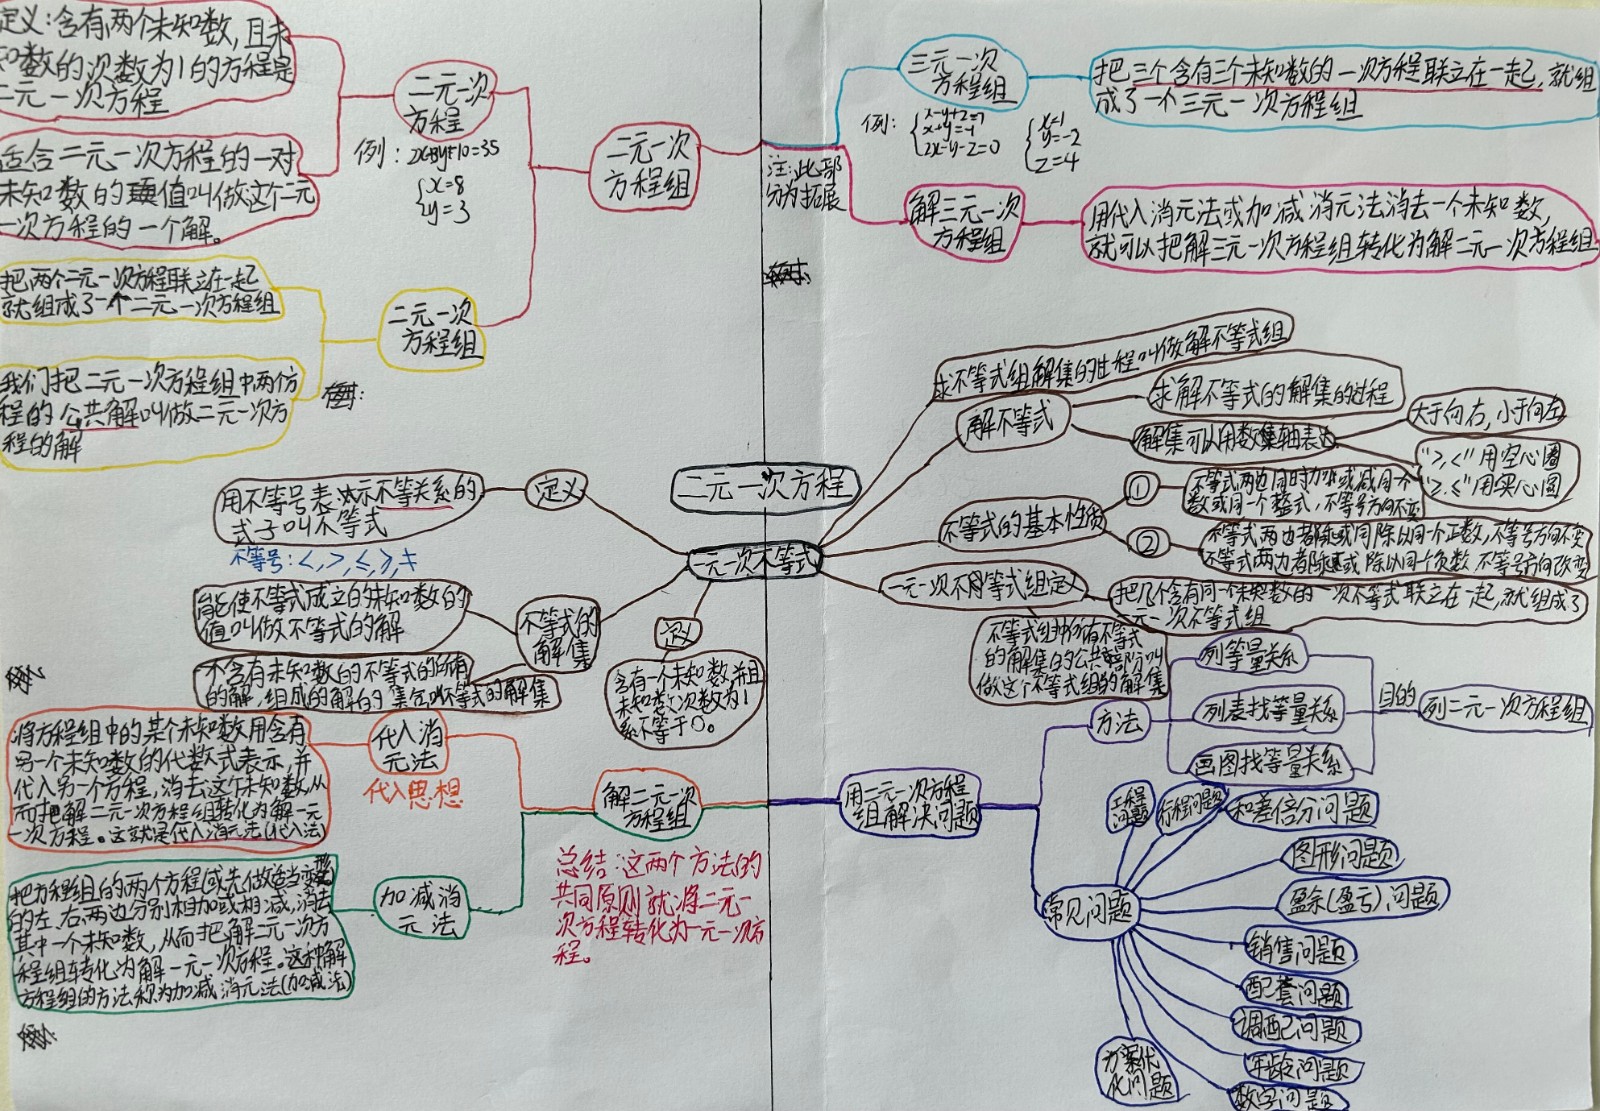 定义：含有两个未知数，且未
知数的次数为1的方程是
二元一次方程
适合二元一次方程的一对
未知数的值叫做这个二元
一次方程的一个解。
二元一次
方程
例：2x+8y+10=35
x=8
y=3
二元一次
方程组
把两个二元一次方程联立在一起
就组成了一个二元一次方程组
我们把二元一次方程组中两个方
程的公共解叫做二元一次方
程的解
二元一次
方程组
三元一次
方程组
把三个含有三个未知数的一次方程联立在一起，就组
成了一个三元一次方程组
例：
x+y=-1
2x-y-z=0
x=1
y=-2
z=4
注：此部
分为拓展
解三元一次
方程组
用代入消元法或加减消元法消去一个未知数，
就可以把解三元一次方程组转化为解二元一次方程组
二元一次方程
一元一次不等式
定义
用不等号表示不等关系的
式子叫不等式
不等号：<，>，≤，≥，≠
不等式的
解集
能使不等式成立的未知数的
值叫做不等式的解
个含有未知数的不等式的所有
的解，组成的解的集合叫不等式的解集
定义
含有一个未知数，并且
未知数次数为1
系不等于0。
求不等式组解集的过程叫做解不等式组
解不等式
求解不等式的解集的过程
解集可以用数轴表达
大于向右，小于向左
“>，<”用空心圈
“≥，≤”用实心圈
不等式的基本性质
①
不等式两边同时加或减同一个
数或同一个整式，不等号方向不变
②
不等式两边都乘或同除以同一个正数，不等号方向不变
不等式两边都乘或除以同个负数 不等号方向改变
一元一次不等式组定义
把几个含有同一个未知数的一次不等式联立在一起，就组成了
一元一次不等式组
不等式组中所有不等式
的解集的公共部分叫
做这个不等式组的解集
代入消
元法
代入思想
将方程组中的某个未知数用含有
另一个未知数的代数式表示，并
代入另一个方程，消去这个未知数从
而把解二元一次方程组转化为解一元
一次方程。这就是代入消元法(代入法)
加减消
元法
把方程组的两个方程(或先做适当变形)
的左、右两边分别相加或相减，消去
其中一个未知数，从而把解二元一次方
程组转化为解一元一次方程。这种解
方程组的方法称为加减消元法(加减法)
解二元一次
方程组
总结：这两个方法的
共同原则就将二元一
次方程转化为一元一次方
程。
用二元一次方程
组解决问题
方法
列等量关系
列表找等量关系
画图找等量关系
目的
列二元一次方程组
常见问题
工程
问题
行程问题
和差倍分问题
图形问题
盈余(盈亏)问题
销售问题
配套问题
调配问题
年龄问题
数字问题
方案优
化问题